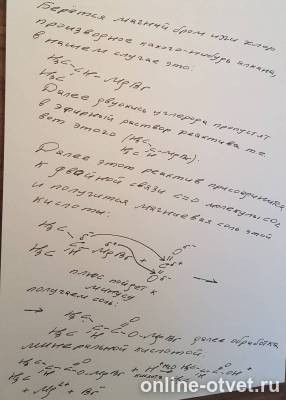 Берётся магний бром или хлор
производное какого-нибудь алкана,
в нашем случае это:
H₃C-CH-MgBr
H₃C
Далее двуокись углерода пропустят
в эфирный раствор реактива т.е.
вот этого (H₃C-C-MgBr).
H₃C H
Далее этот реактив присоединится
к двойной связи C=O молекулы CO₂
и получится магниевая соль этой
кислоты:
H₃C δ- δ+ O δ-
H₃C C-MgBr + C δ+ →
H O δ-
плюс пойдет к
минусу
получаем соль:
→ H₃C O
H₃C C-C-O-MgBr далее обработка
H
минеральной кислотой:
H₃C-C-C-O-MgBr + H⁺ → H₃C-C-C-OH +
H₃C H O кислота H₃C H
+ Mg²⁺ + Br⁻
online-otvet.ru